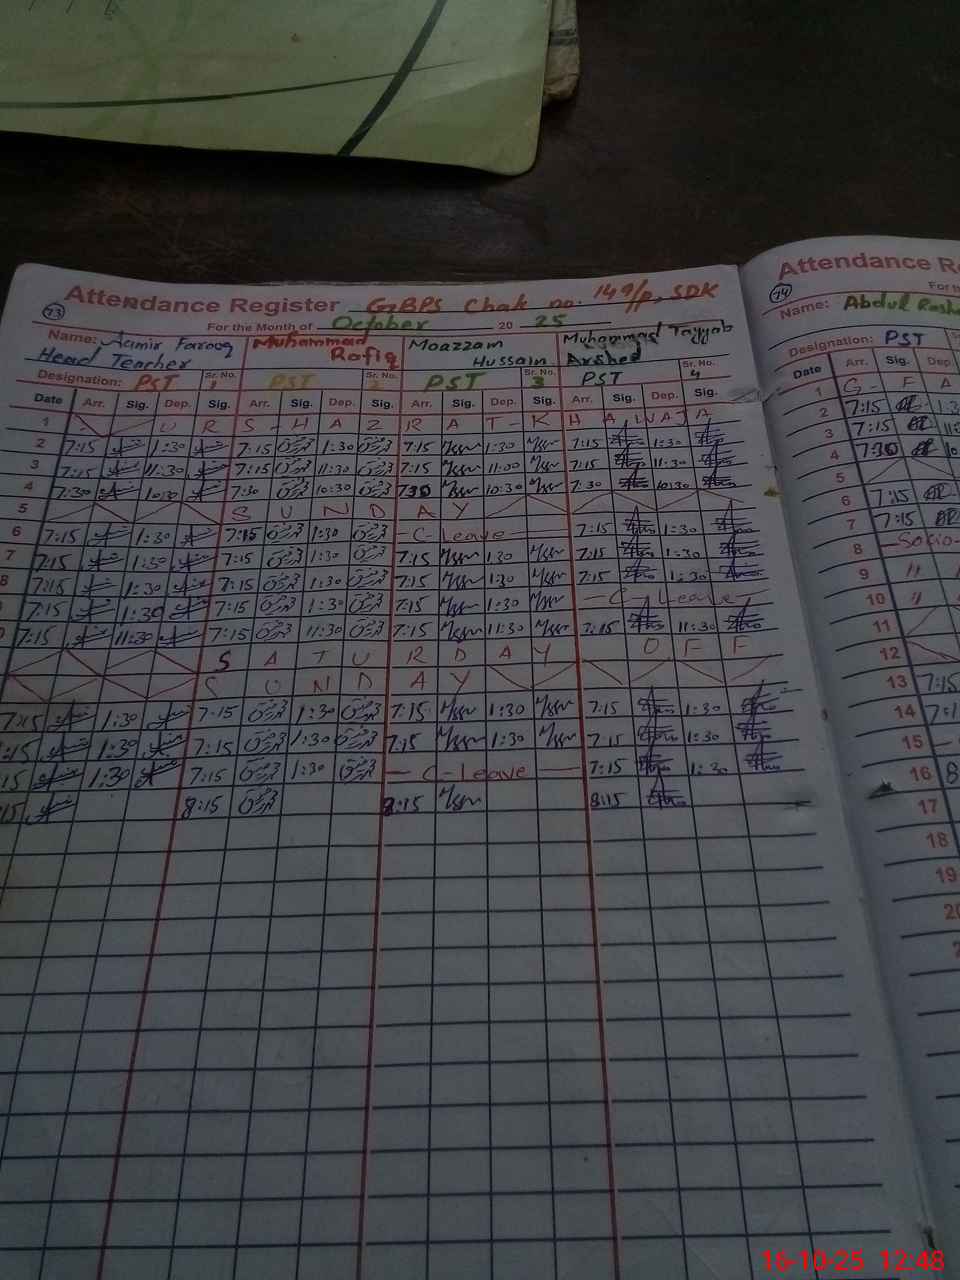 Attendance Register GBPS Chak no. 149/P, SDK
73
For the Month of October 20 25
Name: Aamir Farooq Muhammad Rafiq Moazzam Hussain Muhammad Tayyab Arshed
Head Teacher
Designation: PST Sr. No. 1 PST Sr. No. 2 PST Sr. No. 3 PST Sr. No. 4
Date Arr. Sig. Dep. Sig. Arr. Sig. Dep. Sig. Arr. Sig. Dep. Sig. Arr. Sig. Dep. Sig.
1 U R S - H A Z R A T - K H A W A J A
2 7:15 1:30 7:15 1:30 7:15 1:30 7:15 1:30
3 7:15 11:30 7:15 11:30 7:15 11:00 7:15 11:30
4 7:30 10:30 7:30 10:30 7:30 10:30 7:30 10:30
5 S U N D A Y
6 7:15 1:30 7:15 1:30 C-Leave 7:15 1:30
7 7:15 1:30 7:15 1:30 7:15 1:30 7:15 1:30
8 7:15 1:30 7:15 1:30 7:15 1:30 7:15 1:30
7:15 1:30 7:15 1:30 7:15 1:30 C-Leave
7:15 11:30 7:15 11:30 7:15 11:30 7:15 11:30
S A T U R D A Y O F F
S U N D A Y
7:15 1:30 7:15 1:30 7:15 1:30 7:15 1:30
:15 1:30 7:15 1:30 7:15 1:30 7:15 1:30
15 1:30 7:15 1:30 C-Leave 7:15 1:30
15 8:15 8:15 8:15
Attendance Re
74
For th
Name: Abdul Rashe
Designation: PST
Date Arr. Sig. Dep
1 G - F A
2 7:15 1:3
3 7:15 11:
4 7:30 10
5
6 7:15
7 7:15
8 Socio-
9 "
10 "
11
12
13 7:15
14 7:1
15
16 8
17
18
19
20
16-10-25 12:48